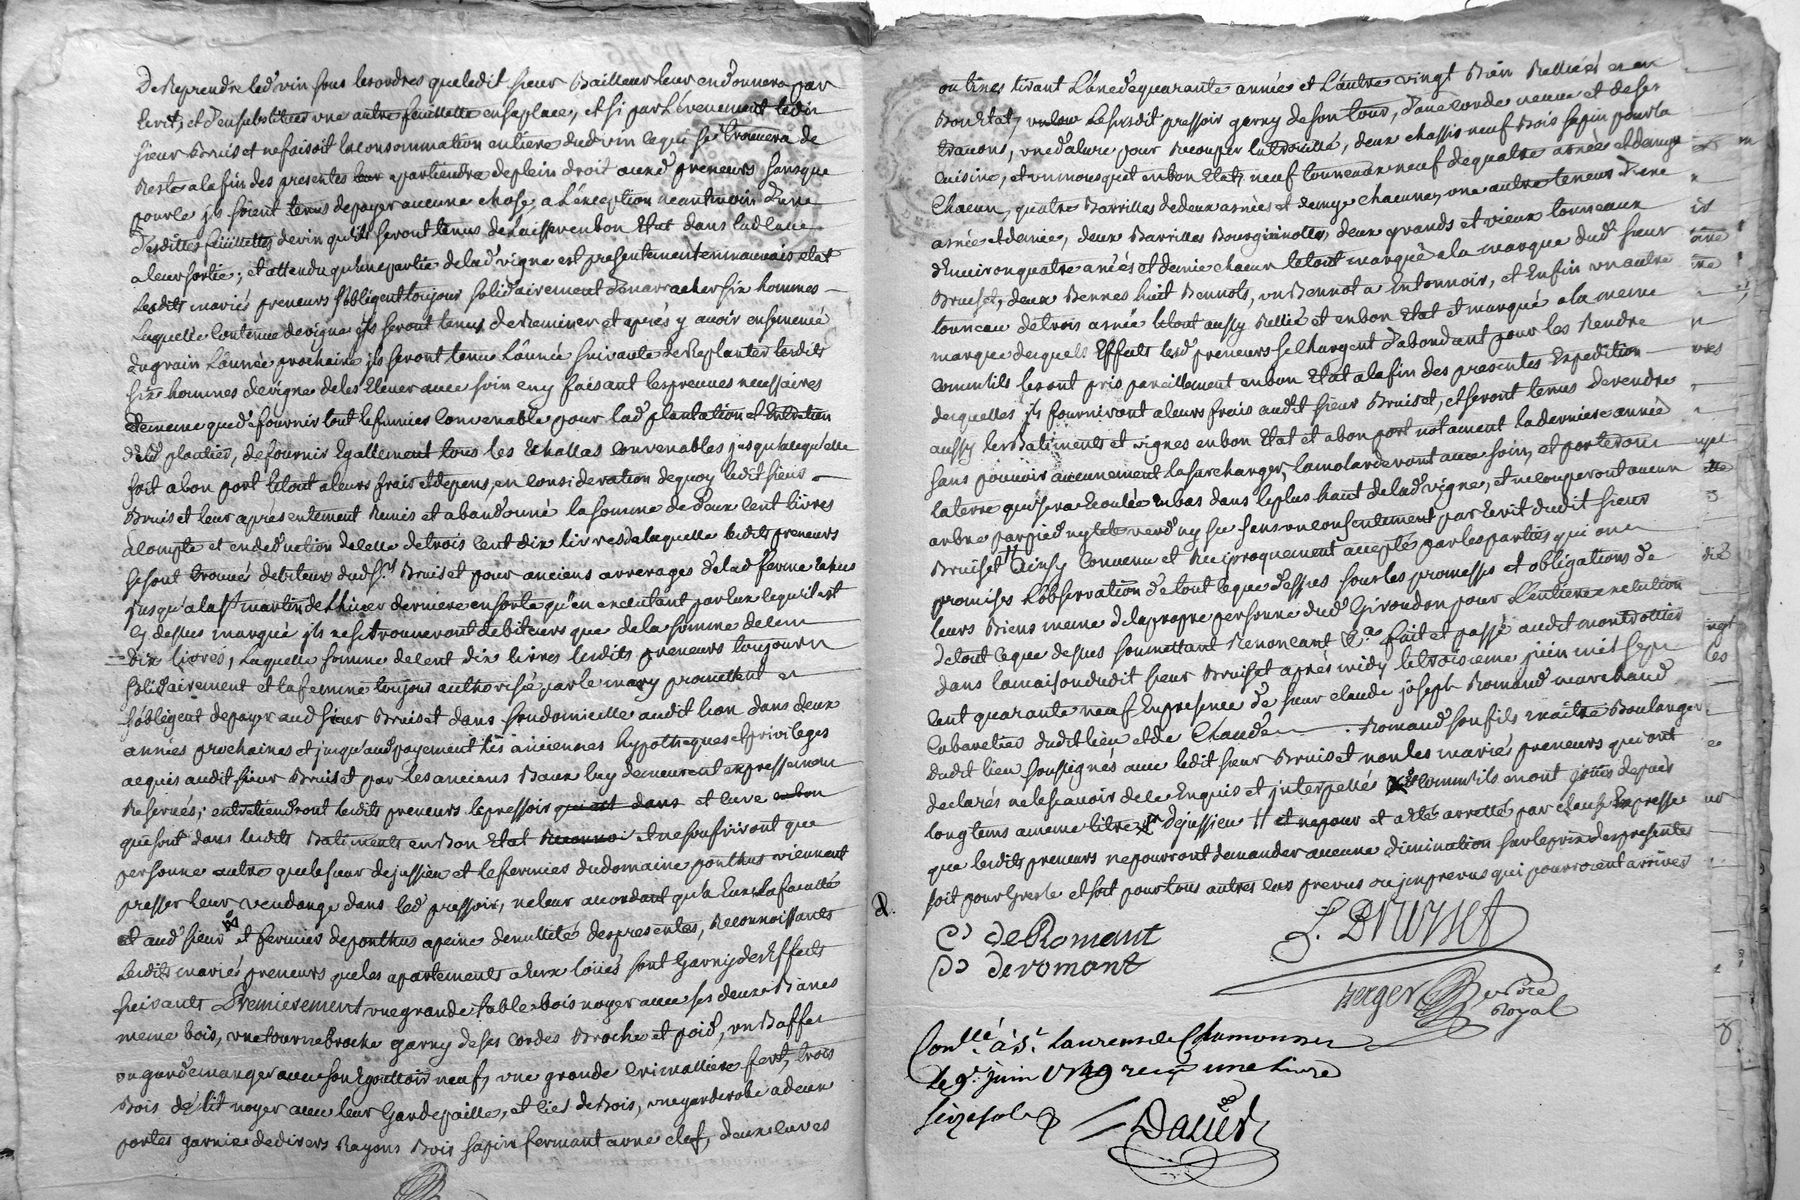 De Reprendre led' vin sous les ordres que ledit sieur Bailleur leur en donnera par
Ecrit, et d'en substituer une autre feuillette en sa place, et si par l'évenement ledit
sieur Bruiset ne faisoit la consommation entiere dud vin ce qui se trouvera de
Reste a la fin des presentes apartiendra de plein droit auxd' preneurs sans que
pour ce ils soient tenus de payer aucune chose a L'exception neantmoins d'une
desdittes feuillettes de vin qu'ils seront tenus de Laisser en bon Etat dans lad cave
a leur sortie; et attendu qu'une partie de lad' vigne est presentement en mauvais etat
Lesdits mariés preneurs s'obligent toujours solidairement d'en arracher six hommes
Laquelle Contenue de vigne ils seront tenus de Reminer et après y avoir ensemencé
du grain L'année prochaine ils seront tenus L'année suivante de Replanter lesdits
six hommes de vigne de les Elever avec soin en y faisant les preuves necessaires
de meme que de fournir tout le fumier convenable pour lad' plantation et Entretien
desd' plantiés, de fournir Egallement tous les Echallas convenables jusqu'a ce qu'elle
soit a bon port le tout a leurs frais et depens, en consideration de quoy ledit sieur
Bruiset leur a presentement Remis et abandonné la somme de deux cent livres
a compte et en deduction de celle de trois cent dix livres de laquelle lesdits preneurs
se sont trouvés debiteurs dud Sr Bruiset pour anciens arrerages de lad' ferme Echus
jusqu'a la St martin de L'hiver derniere en sorte qu'en executant par Eux ce qu'il est
cy dessus marqué ils ne se trouveront debiteurs que de la somme de cent
Dix livres, Laquelle somme de cent dix livres lesdits preneurs toujours
solidairement et la femme toujours authorisée par le mary promettent et
s'obligent de payer aud sieur Bruiset dans son domicille audit lieu dans deux
années prochaines et jusqu'aud payement les anciennes hypotheques et privileges
acquis audit sieur Bruiset par les anciens Baux luy demeurent expressement
Reservés; entretiendront lesdits preneurs le pressoir qui est dans et cuve en bon
qui sont dans lesdits Batiments en Bon Etat et ne souffriront que
personne autre que le sieur dejussieu et le fermier du domaine ponthus viennent
presser leur vendange dans led' pressoir, ne leur accordant qu'a Eux la faculté
et aud' sieur et fermier de ponthus a peine de nullité des presentes, Reconnoissants
Lesdits mariés preneurs que les apartements a Eux loüés sont Garnys des Effects
suivants Premierement une grande table bois noyer avec ses deux Bancs
meme bois, un tournebroche garny de ses cordes Broche et poid, un Buffet
un garde manger avec son Egouttoir neuf, une grande crimalliere fert, trois
Bois de lit noyer avec leur Gardepaille, et ciel de Bois, une garderobe a deux
portes garnie de divers Rayons Bois sapin fermant a une clef, deux cuves
ou tines tirant L'une de quarante année et L'autre vingt Bien Relliées et en
Bon Etat, Le susdit pressoir garny de son tour, d'une corde neuve et de ses
une dalure pour Recouper la trouille, deux chassis neuf Bois sapin pour la
Cuisine, et un mousquet en bon Etat, neuf tonneaux neuf de quatre années et demye
Chacun, quatre Barrilles de deux asnées et demye chacune, une autre teneur d'une
asnée et demie, deux Barrilles Bourginiottes, deux grands et vieux tonneaux
d'environ quatre anées et demie chacun le tout marqué a la marque dud' sieur
Bruiset, deux Bennes huit Bennots, un Bennot a Entonnoir, et Enfin un autre
tonneau de trois asnée le tout aussy Rellié et en bon Etat et marqué a la meme
marque desquels Effects lesd' preneurs se Chargent d'abondant pour les Rendre
comme ils les ont pris pareillement en bon Etat a la fin des presentes Expedition
desquelles ils fourniront a leurs frais audit sieur Bruiset, et seront tenus de rendre
aussy les Batiments et vignes en bon Etat et a bon port notament la derniere année
sans pouvoir aucunement la surcharger, avec soin, et porteront
la terre qui sera Ecoulée en bas dans le plus haut de lad' vigne, et ne couperont aucun
arbre par pied ny tete verd' ny sec sans un consentement par Ecrit dudit sieur
Bruiset Ainsy Convenu et Reciproquement accepté par les parties qui ont
promises L'observation de tout ce que dessus sous les promesses et obligations de
leurs Biens meme de la propre personne dud' Giroudon pour L'entiere execution
de tout ce que dessus soumettant Renonceant &a fait et passé audit montrottier
dans la maison dudit sieur Bruiset après midy le troisieme juin mil sept
cent quarante neuf En presence de sieur claude joseph Romand marchand
Cabaretier dudit lieu et de Claude Romand son fils maitre Boulanger
dudit lieu soussignés avec ledit sieur Bruiset et non les mariés preneurs qui ont
declarés ne le sçavoir de ce Enquis et jnterpellés comme ils en ont joüis depuis
long tems a meme titre dejussieu et a été arretté par clause Expresse
que lesdits preneurs ne pourront demander aucune diminution sur le prix des presentes
soit pour Gresle et soit pour tous autres cas prevus ou jmprevus qui pourroient arriver
deRomant
J. Bruyset
deromant
Berger Notaire
Royal
Conllé à St Laurens de Chamousset
Le 9e juin 1749 reçu une livre
seize sols